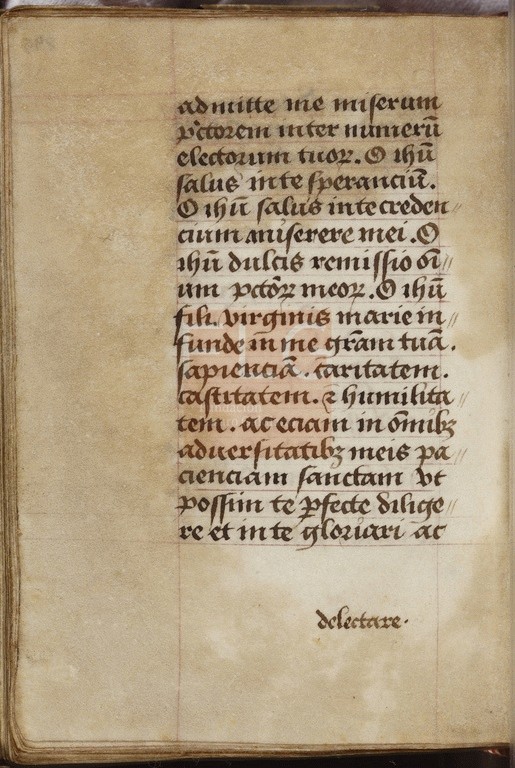 admitte me miserum
pctorem inter numerū
electorum tuoꝝ. O ihū
salus in te speranciū.
O ihū salus in te creden//
cium miserere mei. O
ihū dulcis remissio oī//
um pctōꝝ meoꝝ. O ihū
fili virginis marie in//
funde in me grām tuā.
sapienciā. caritatem.
castitatem. ⁊ humilita//
tem. ac eciam in oībꝫ
aduersitatibꝫ meis pa//
cienciam sanctam vt
possim te ꝑfecte dilige//
re et in te gloriari ac
delectare.